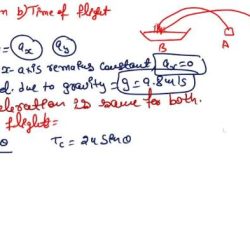 n b) Time of flight
= ax ay
B A
x-axis remains constant ax=0
d. due to gravity = g = 9.8 m/s
eleration is same for both.
flight =
θ Tc = 2u sinθ